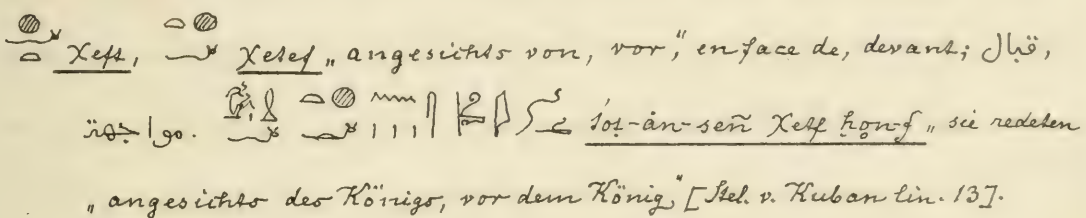 𓐍𓆑𓏏 χeft, 𓏏𓐍𓆑 χetef „angesichts von, vor," en face de, devant; قبال,
مواجهة. śoṭ-ȧn-señ χetf ḥon-f „sie redeten
„angesichts des Königs, vor dem König" [Stel. v. Kuban lin. 13].